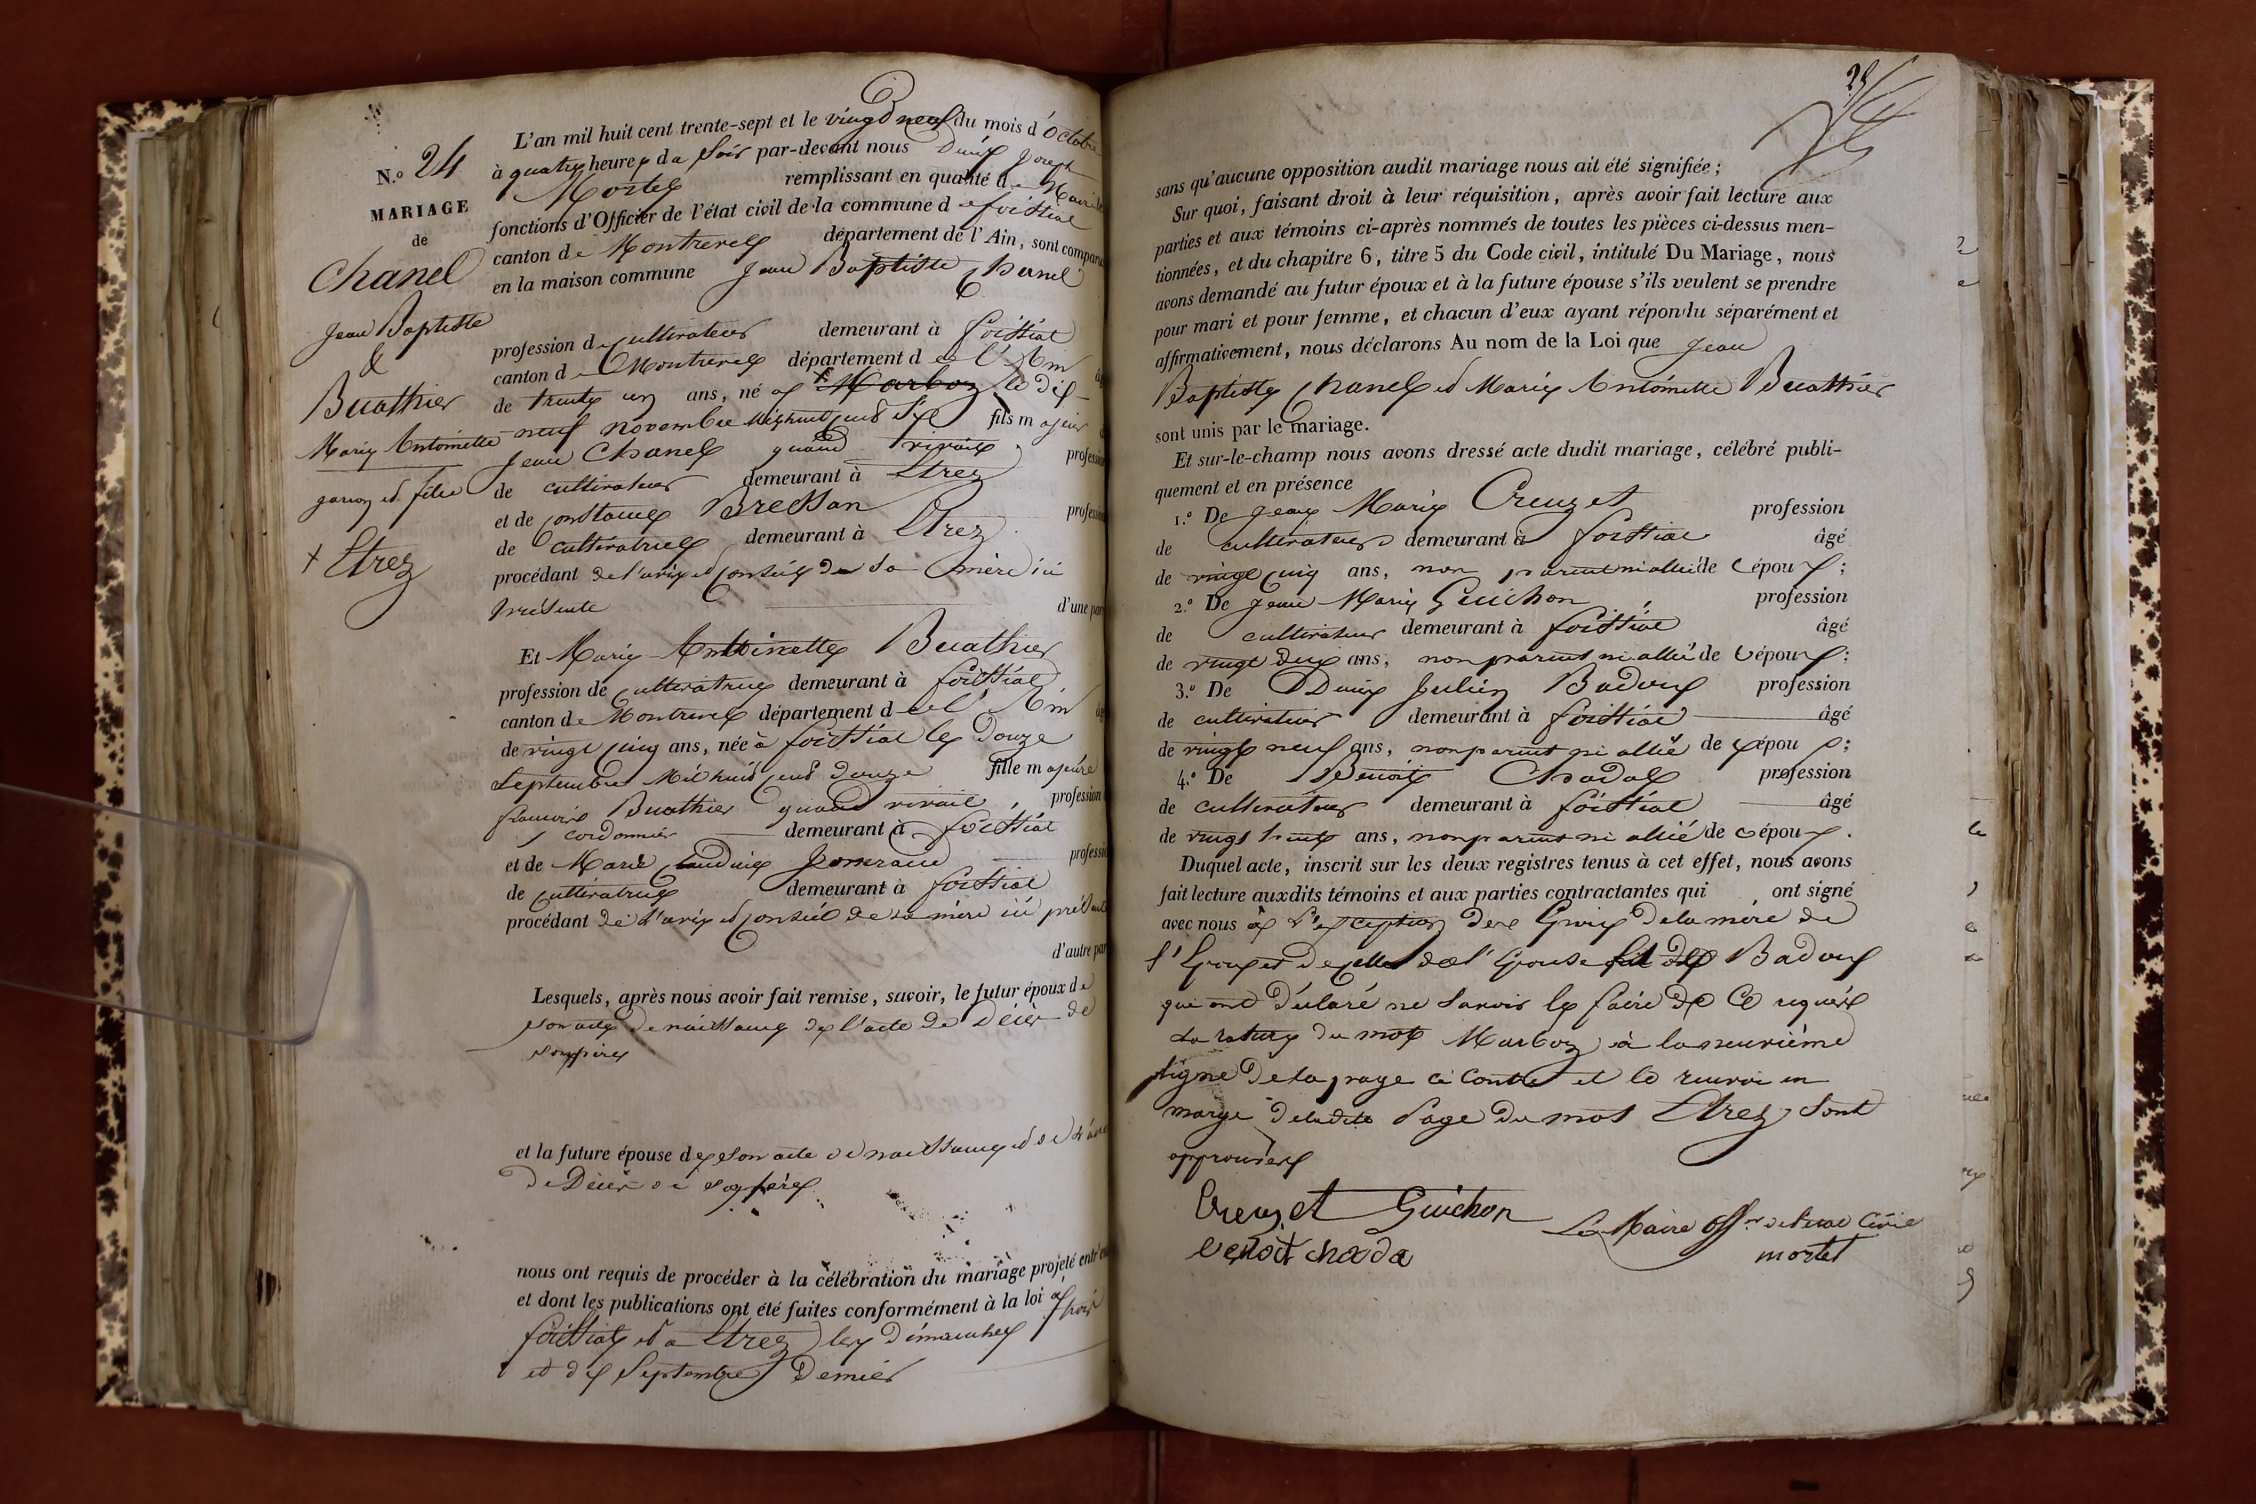 N.o 24
MARIAGE
de
Chanel
Jean Baptiste
&
Buathier
Marie Antoinette
garçon et fille
+ Etrez
L'an mil huit cent trente-sept et le vingt neuf du mois d'Octobre
à quatre heures du Soir par-devant nous Denis Joseph
Mortel remplissant en qualité de Maire les
fonctions d'Officier de l'état civil de la commune de foissiat
canton de Montrevel département de l'Ain, sont comparus
en la maison commune Jean Baptiste Chanel
profession de cultivateur demeurant à foissiat
canton de Montrevel département de l'Ain
de trente un ans, né à + Marboz le dix-
neuf novembre mil huit cent six fils majeur
Jean Chanel quand vivait profession
de cultivateur demeurant à Etrez
et de Constance Bressan profession
de cultivatrice demeurant à Etrez
procédant de l'avis et conseil de sa mère ici
présente d'une part
Et Marie Antoinette Buathier
profession de cultivatrice demeurant à foissiat
canton de Montrevel département de l'Ain
de vingt cinq ans, née à foissiat le douze
Septembre mil huit cent douze fille majeure
françois Buathier quand vivait profession
cordonnier demeurant à foissiat
et de Marie Claudine profession
de cultivatrice demeurant à foissiat
procédant de l'avis et conseil de sa mère ici présente
d'autre part
Lesquels, après nous avoir fait remise, savoir, le futur époux de
son acte de naissance de l'acte de Décès de
son père
et la future épouse de son acte de naissance et de l'acte
de Décès de son père
nous ont requis de procéder à la célébration du mariage projeté entr'eux
et dont les publications ont été faites conformément à la loi à
foissiat et a Etrez les Dimanches
et dix Septembre Dernier
25
sans qu'aucune opposition audit mariage nous ait été signifiée;
Sur quoi, faisant droit à leur réquisition, après avoir fait lecture aux
parties et aux témoins ci-après nommés de toutes les pièces ci-dessus men-
tionnées, et du chapitre 6, titre 5 du Code civil, intitulé Du Mariage, nous
avons demandé au futur époux et à la future épouse s'ils veulent se prendre
pour mari et pour femme, et chacun d'eux ayant répondu séparément et
affirmativement, nous déclarons Au nom de la Loi que Jean
Baptiste Chanel et Marie Antoinette Buathier
sont unis par le mariage.
Et sur-le-champ nous avons dressé acte dudit mariage, célébré publi-
quement et en présence
1.o De Jean Marie Creuzet profession
de cultivateur demeurant à foissiat âgé
de vingt cinq ans, non parent ni allié de l'époux;
2.o De Jean Marie Guichon profession
de cultivateur demeurant à foissiat âgé
de vingt deux ans, non parent ni allié de l'époux;
3.o De Denis Julien Badoux profession
de cultivateur demeurant à foissiat âgé
de vingt neuf ans, non parent ni allié de l'époux;
4.o De Benoit Chadal profession
de cultivateur demeurant à foissiat âgé
de vingt huit ans, non parent ni allié de l'époux.
Duquel acte, inscrit sur les deux registres tenus à cet effet, nous avons
fait lecture auxdits témoins et aux parties contractantes qui ont signé
avec nous à l'exception des Epoux de la mère de
l'Epoux et de celle de l'Epouse Badoux
qui ont déclaré ne Savoir le faire de ce requis
la rature du mot Marboz à la neuvième
ligne de la page ci contre et le renvoi en
marge de ladite Page du mot Etrez Sont
approuvés
Creuzet Guichon
Le Maire Off.er de l'état Civil
benoit chada
mortel